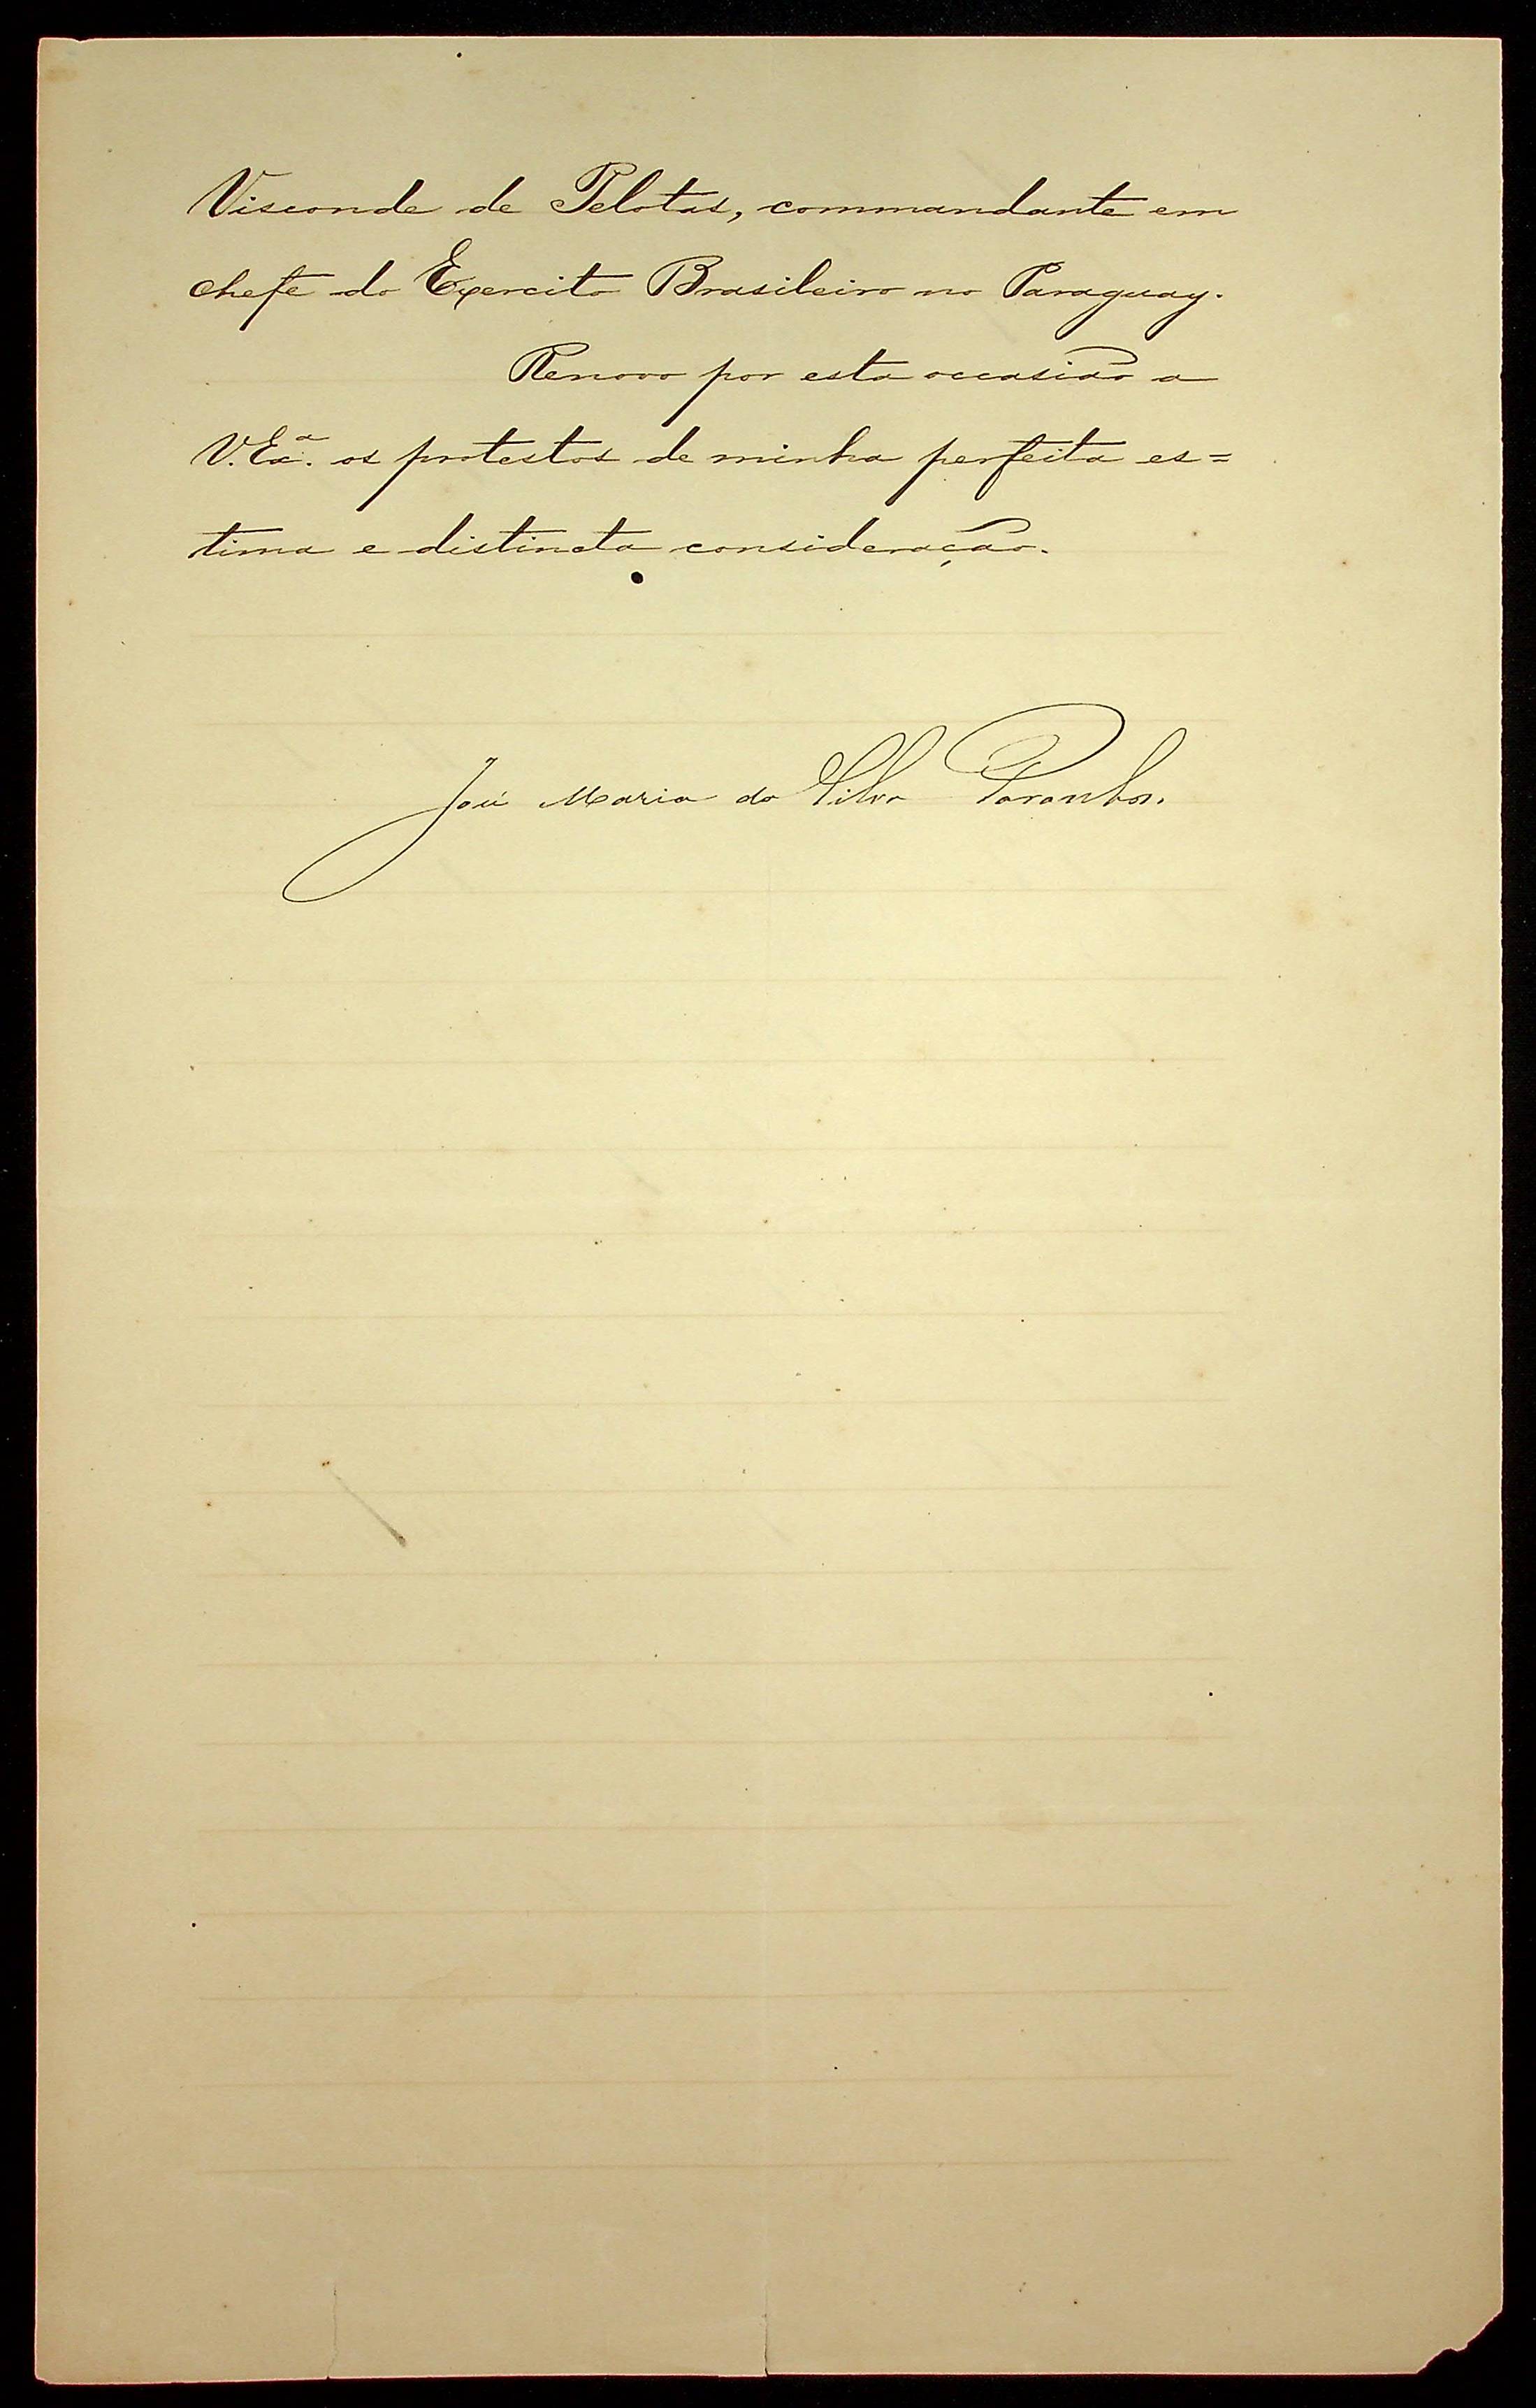 Visconde de Pelotas, commandante em
chefe do Exercito Brasileiro no Paraguay.
Renovo por esta occasião a
V. Exª. os protestos de minha perfeita es=
tima e distincta consideração.
José Maria da Silva Paranhos.